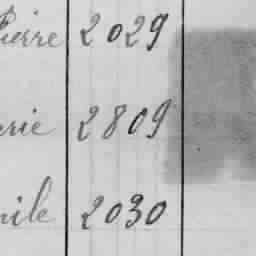 Pierre 2029
arie 2809
mile 2030